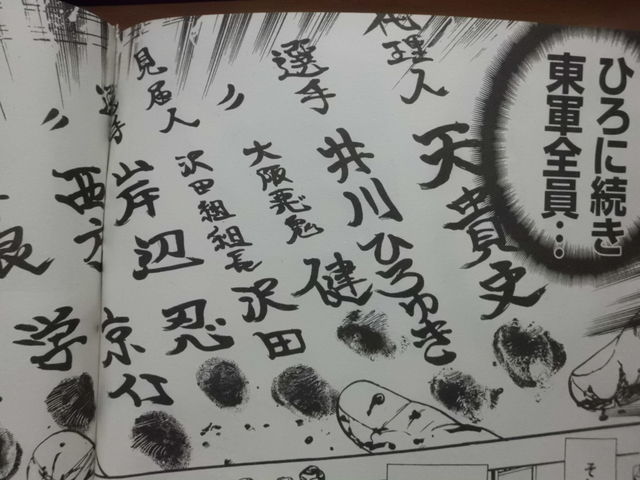 ひろに続き
東軍全員…
代理人 天貴史
選手 井川ひろゆき
〃 大阪悪鬼 健
見届人 沢田組組長 沢田
選手 岸辺忍
〃 西
京
良 学
そ